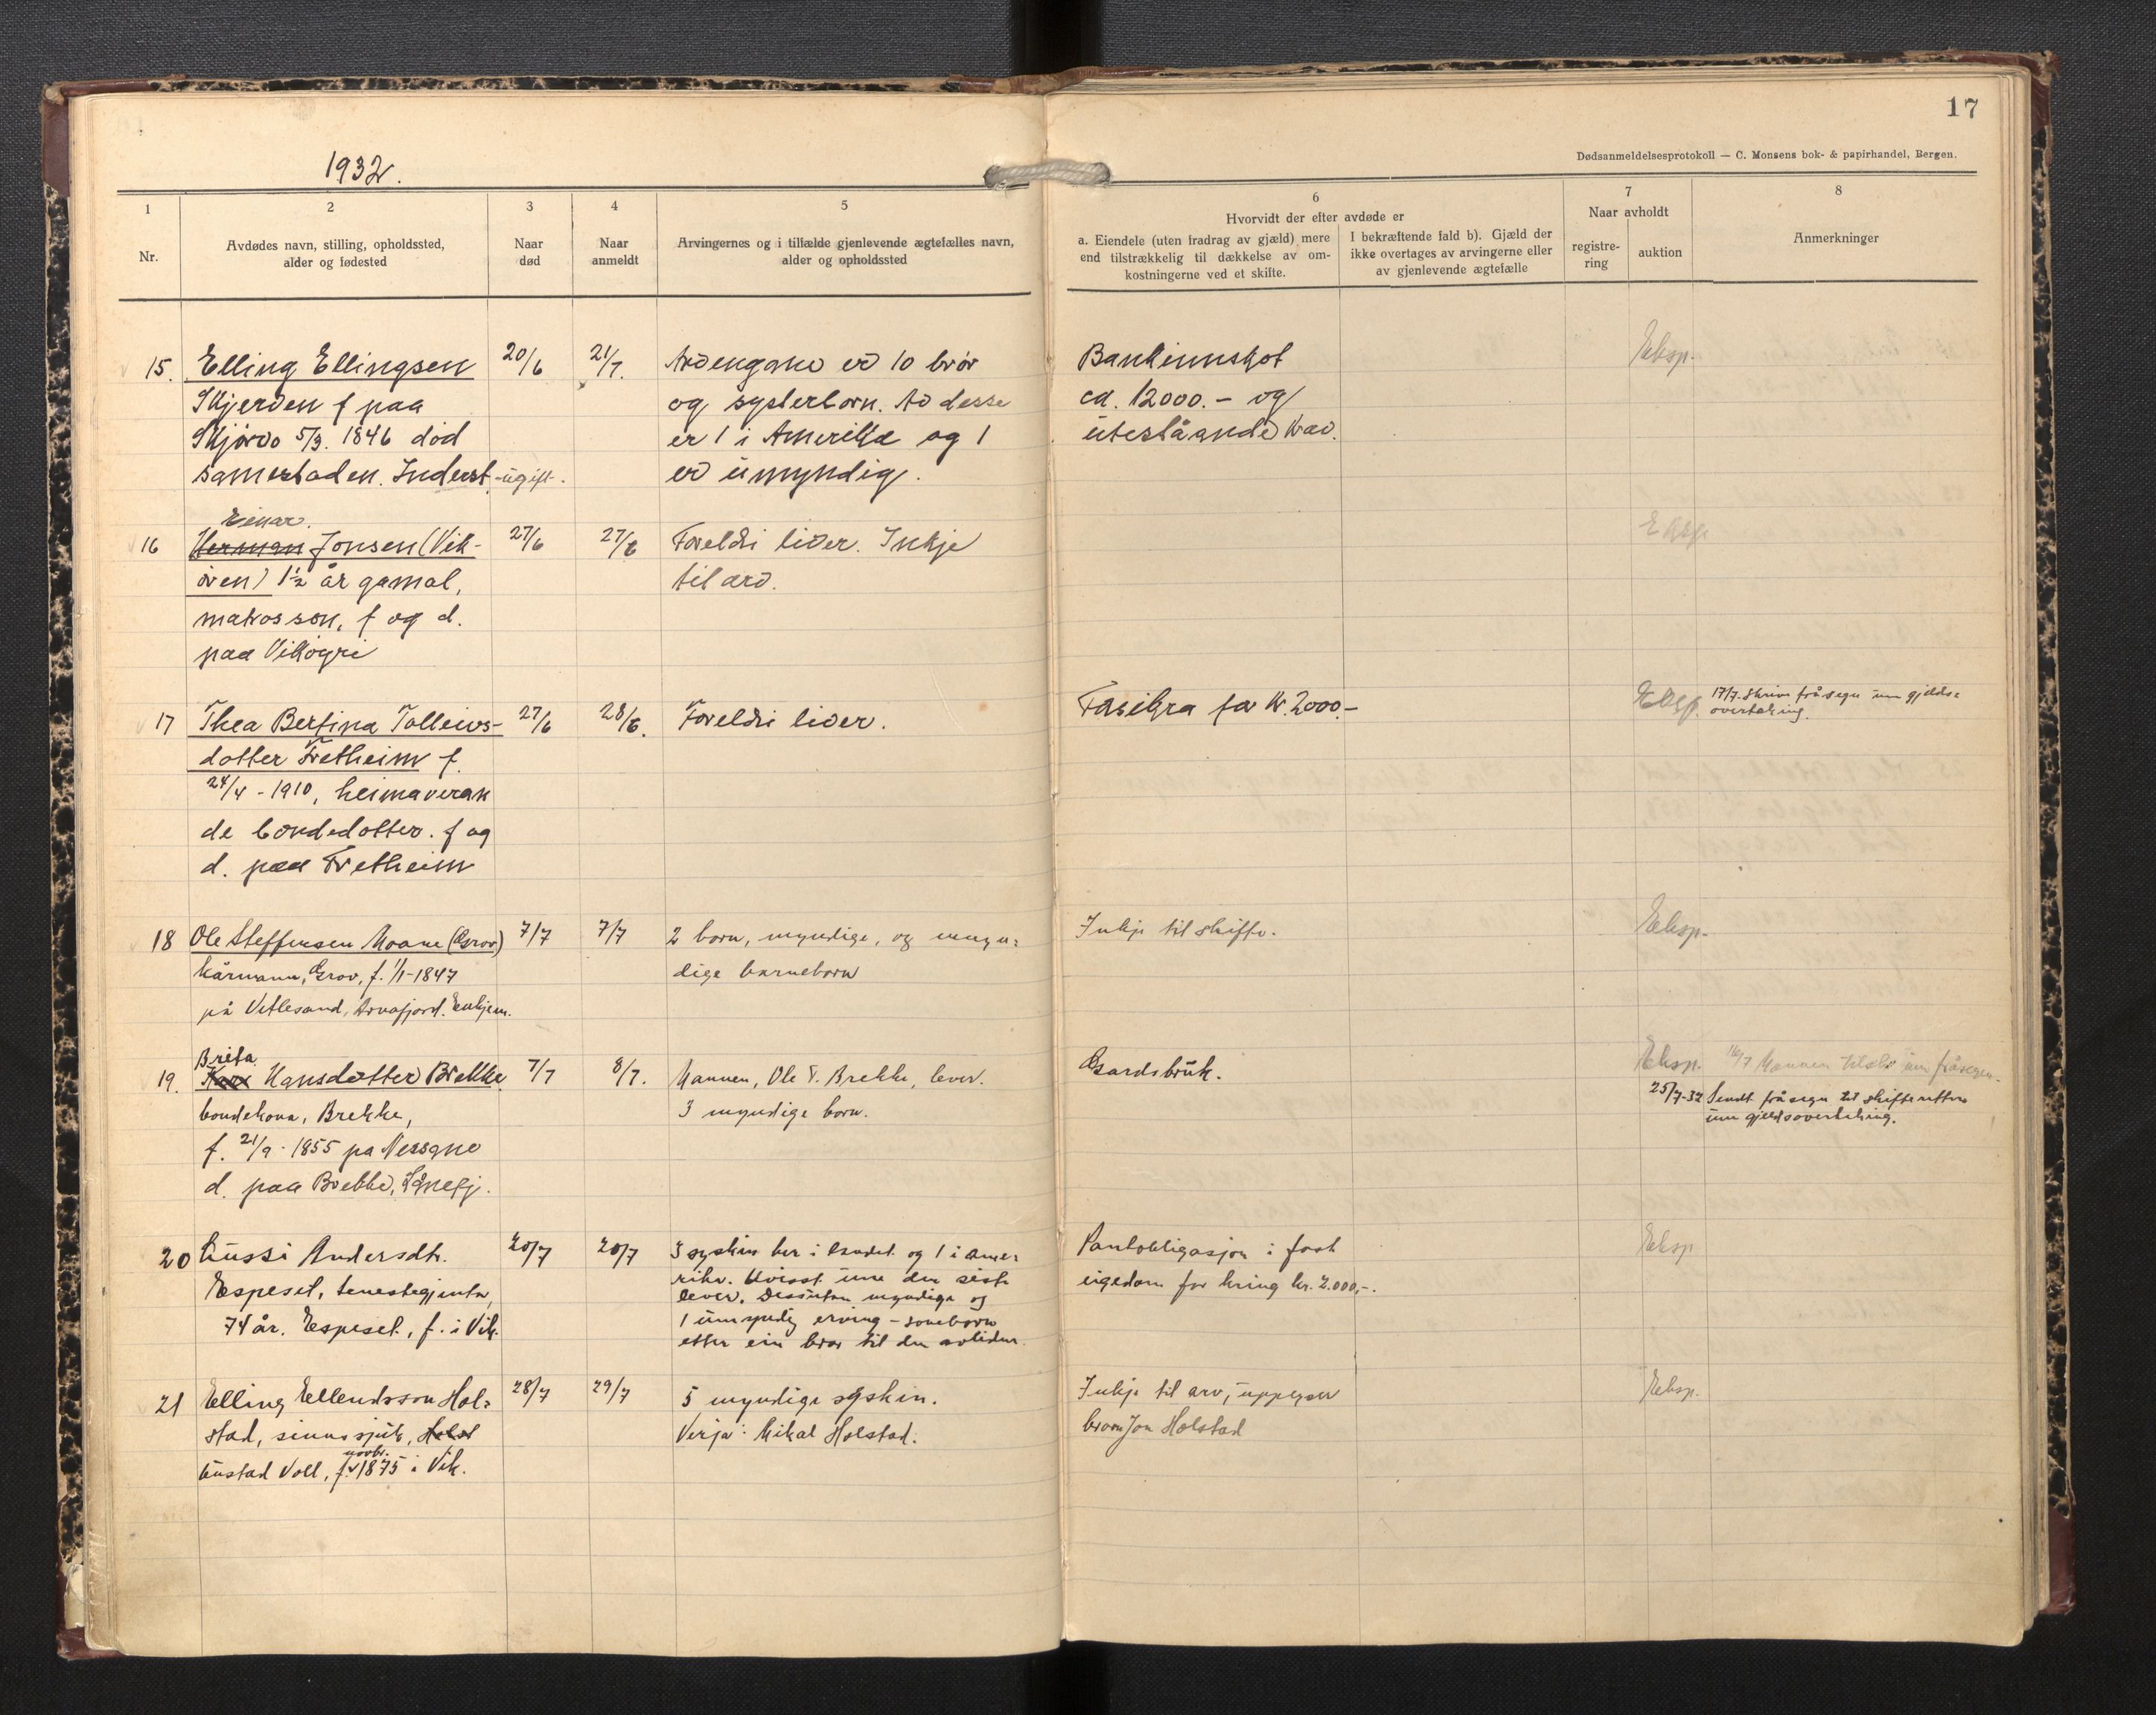 17
Dødsanmeldelsesprotokoll — C. Monsens bok- & papirhandel, Bergen.
1932.
1
Nr.
2
Avdødes navn, stilling, opholdssted,
alder og fødested
3
Naar
død
4
Naar
anmeldt
5
Arvingernes og i tilfælde gjenlevende ægtefælles navn,
alder og opholdssted
6
Hvorvidt der efter avdøde er
a. Eiendele (uten fradrag av gjæld) mere
end tilstrækkelig til dækkelse av om-
kostningerne ved et skifte.
I bekræftende fald b). Gjæld der
ikke overtages av arvingerne eller
av gjenlevende ægtefælle
7
Naar avholdt
registre-
ring
auktion
8
Anmerkninger
15. Elling Ellingsen
Skjerden f paa
Skjørvo 5/3. 1846 död
samestaden. Inderst -ugift-.
20/6
21/7.
Arvengane er 10 brör
og systerborn. Av desse
er 1 i Amerika og 1
er umyndig.
Bankinnskot
ca. 12000.- og
uteståande krav.
Eksp.
16 Einar.
Herman Jonsen (Vik-
ören) 1½ år gamal,
matrosson, f og d.
paa Vikøyri
27/6
27/6
Foreldri liver. Inkje
til arv.
Eksp.
17 Thea Bertina Tolleivs-
dotter Fretheim f.
24/4 - 1910, heimaveran
de bondedotter. f og
d. paa Fretheim
27/6
28/6.
Foreldri liver.
Fasikra for kr. 2000.-
Eksp.
17/7. Skrive fråsegn um gjelds-
overtaking.
18 Ole Steffensen Moane (Grov)
kårmann, Grov, f. 1/1-1847
på Vetlesand, Arnafjord. Enkjem.
7/7
7/7
2 born, myndige, og umyn-
dige barneborn
Inkje til skifte.
Eksp.
19. Brita
Kari Hansdotter Brekke
bondekona, Brekke,
f. 21/9 - 1855 pa Nessane
d. paa Brekke,
7/7
8/7.
Mannen, Ole T. Brekke, lever.
3 myndige born.
Gardsbruk.
Eksp.
16/7 Mannen um fråsegn.
25/7-32 Sendt fråsegn til skifteretten
um gjeldsovertaking.
20 Gussi Andersdtr.
Espeset, tenestegjenta,
74 år. Espeset, f. i Vik.
20/7
20/7
3 syskin her i landet og 1 i Ame-
rika. Uvisst um den siste
lever. Dessutan myndige og
1 umyndig erving - soneborn
etter ein bror til den avlidne.
Pantobligasjon i fast
eigedom for kring kr. 2.000,-.
Eksp
21 Elling Ellendsson Hol-
stad, sinnssjuk,
novbr.
bustad Voll, f. 1875 i Vik.
28/7
29/7
5 myndige syskin.
Verja: Mikal Holstad.
Inkje til arv, uppgjev
broren Jon Holstad
Eksp.